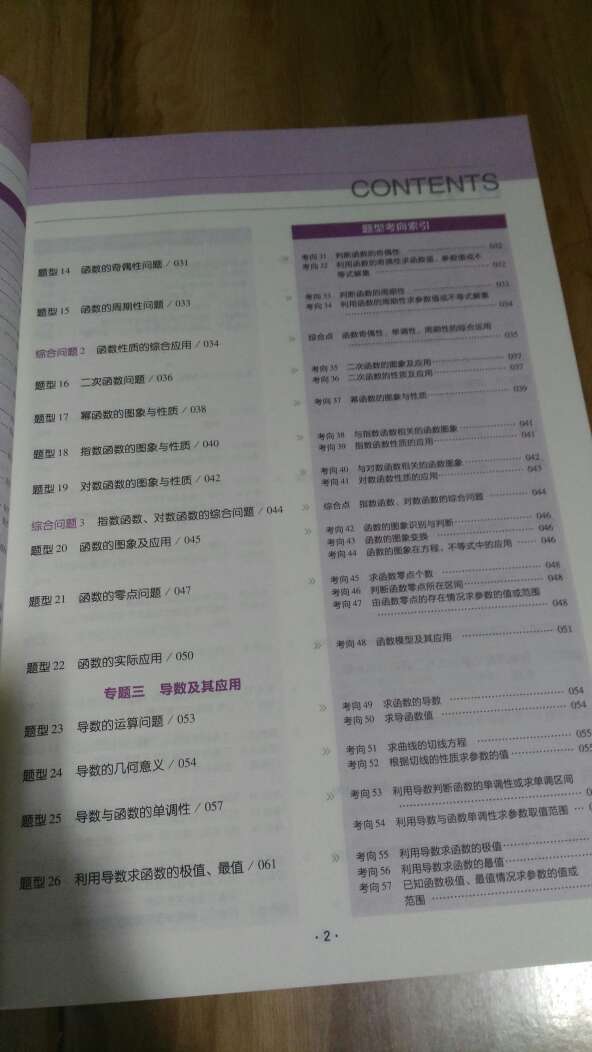 CONTENTS
题型14 函数的奇偶性问题 / 031
题型15 函数的周期性问题 / 033
综合问题2 函数性质的综合应用 / 034
题型16 二次函数问题 / 036
题型17 幂函数的图象与性质 / 038
题型18 指数函数的图象与性质 / 040
题型19 对数函数的图象与性质 / 042
综合问题3 指数函数、对数函数的综合问题 / 044
题型20 函数的图象及应用 / 045
题型21 函数的零点问题 / 047
题型22 函数的实际应用 / 050
专题三 导数及其应用
题型23 导数的运算问题 / 053
题型24 导数的几何意义 / 054
题型25 导数与函数的单调性 / 057
题型26 利用导数求函数的极值、最值 / 061
题型考向索引
考向31 判断函数的奇偶性 032
考向32 利用函数的奇偶性求函数值、参数值或不
等式解集 032
考向33 判断函数的周期性 033
考向34 利用函数的周期性求参数值或不等式解集
034
综合点 函数奇偶性、单调性、周期性的综合运用
035
考向35 二次函数的图象及应用 037
考向36 二次函数的性质及应用 037
考向37 幂函数的图象与性质 039
考向38 与指数函数相关的函数图象 041
考向39 指数函数性质的应用 041
考向40 与对数函数相关的函数图象 042
考向41 对数函数性质的应用 043
综合点 指数函数、对数函数的综合问题 044
考向42 函数的图象识别与判断 046
考向43 函数的图象变换 046
考向44 函数的图象在方程、不等式中的应用 046
考向45 求函数零点个数 048
考向46 判断函数零点所在区间 048
考向47 由函数零点的存在情况求参数的值或范围
048
考向48 函数模型及其应用 051
考向49 求函数的导数 054
考向50 求导函数值 054
考向51 求曲线的切线方程 055
考向52 根据切线的性质求参数的值 055
考向53 利用导数判断函数的单调性或求单调区间
考向54 利用导数与函数单调性求参数取值范围
考向55 利用导数求函数的极值
考向56 利用导数求函数的最值
考向57 已知函数极值、最值情况求参数的值或
范围
·2·